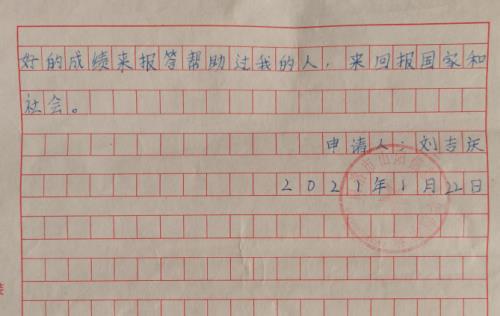 好的成绩来报答帮助过我的人，来回报国家和
社会。
申请人：刘吉庆
2021年1月22日